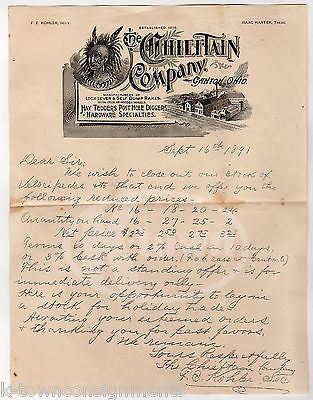 F. E. KOHLER, SEC'Y.
ISAAC HARTER, TREAS.
ESTABLISHED 1878.
THE CHIEFTAIN
Company,
CANTON, OHIO.
MANUFACTURERS OF
LOCK LEVER & SELF DUMP RAKES.
WITH IRON OR WOODEN WHEELS
HAY TEDDERS, POST HOLE DIGGERS
HARDWARE SPECIALTIES.
Sept 16th 1891
Dear Sir:
We wish to close out our stock of
Velocipedes & to that end we offer you the
following reduced prices—
No 16 - 18 - 20 - 24
Quantity on hand 16 - 27 - 25 - 2
Net price
Terms 60 days or 2% Cash in 10 days,
or 3% Cash with order. (F.o.b cars at Canton O.)
This is not a standing offer & is for
immediate delivery only—
Here is your opportunity to lay in
a stock for holiday trade.
Awaiting your esteemed orders
& thanking you for past favors,
We remain
Yours Respectfully
The Chieftain Company
F. E. Kohler Sec
k-townconsignments